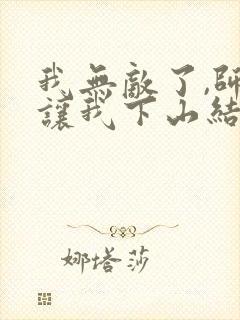 我無敵了,師
讓我下山結
娜塔莎